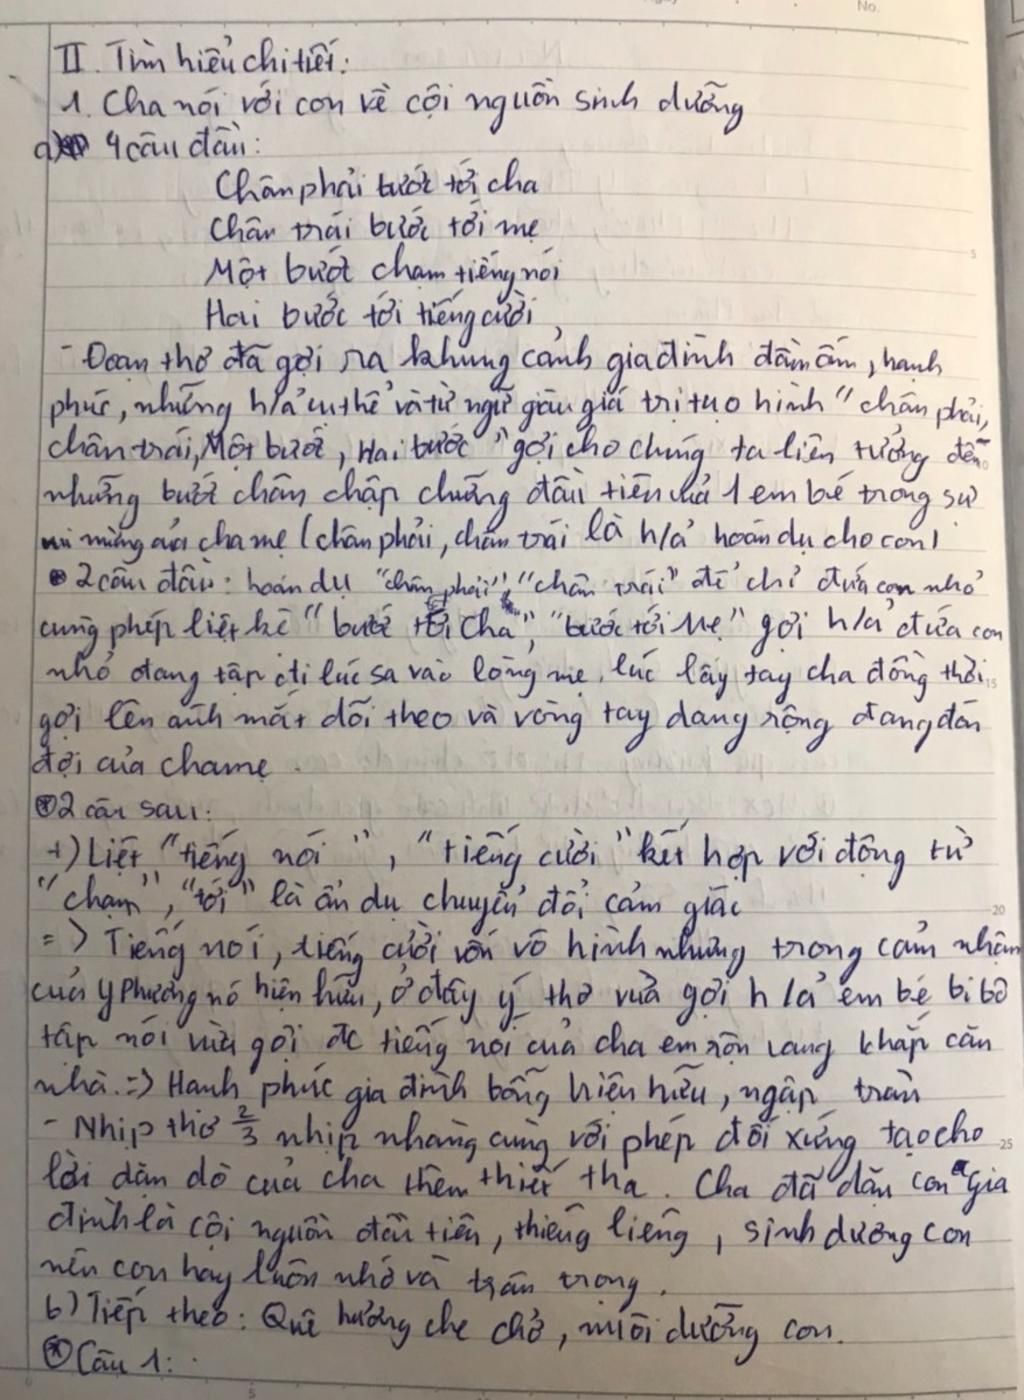 No.
II. Tìm hiểu chi tiết:
1. Cha nói với con về cội nguồn sinh dưỡng
a) 4 câu đầu:
Chân phải bước tới cha
Chân trái bước tới mẹ
Một bước chạm tiếng nói
Hai bước tới tiếng cười
- Đoạn thơ đã gợi ra khung cảnh gia đình đầm ấm, hạnh
phúc, những h/ả cụ thể và từ ngữ giàu giá trị tạo hình "chân phải,
chân trái, Một bước, Hai bước" gợi cho chúng ta liên tưởng đến
những bước chân chập chững đầu tiên của 1 em bé trong sự
mừng của cha mẹ (chân phải, chân trái là h/ả hoán dụ cho con)
2 câu đầu: hoán dụ "chân phải", "chân trái" để chỉ đứa con nhỏ
cùng phép liệt kê "bước tới Cha", "bước tới Mẹ" gợi h/ả đứa con
nhỏ đang tập đi lúc sa vào lòng mẹ, lúc lấy tay cha đồng thời
gợi lên ánh mắt dõi theo và vòng tay dang rộng đang đón
đợi của cha mẹ.
⊛ 2 câu sau:
+) Liệt "tiếng nói", "tiếng cười" kết hợp với động từ
"chạm", "tới" là ẩn dụ chuyển đổi cảm giác
=> Tiếng nói, tiếng cười vốn vô hình nhưng trong cảm nhận
của Y Phương nó hiện hữu, ở đây ý thơ vừa gợi h/ả em bé bi bô
tập nói vừa gợi đc tiếng nói của cha em rộn vang khắp căn
nhà. => Hạnh phúc gia đình bỗng hiện hữu, ngập tràn
- Nhịp thơ 2/3 nhịp nhàng cùng với phép đối xứng tạo cho
lời dặn dò của cha thêm thiết tha. Cha đã dặn con "Gia
đình là cội nguồn đầu tiên, thiêng liêng, sinh dưỡng con
nên con hãy luôn nhớ và trân trọng.
b) Tiếp theo: Quê hương che chở, nuôi dưỡng con.
⊛ Câu 1: